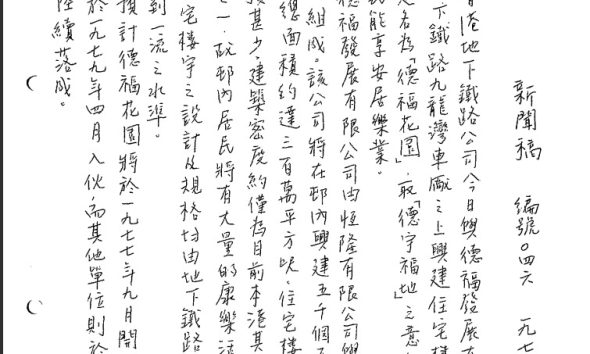 新聞稿 編號〇四六 一九七
香港地下鐵路公司今日與德福發展有
下鐵路九龍灣車廠之上興建住宅樓
名為「德福花園」,取「德宇福地」之意
能享安居樂業。
德福發展有限公司由恒隆有限公司與
組成。該公司將在邨內興建五千個
總面積約達三百萬平方呎,住宅樓
甚少,建築密度約僅為目前本港其
一,故邨內居民將有大量的康樂活
宅樓宇之設計及規格均由地下鐵路
到一流之水準。
預計德福花園將於一九七七年九月開
於一九七九年四月入伙,而其他單位則於
陸續落成。